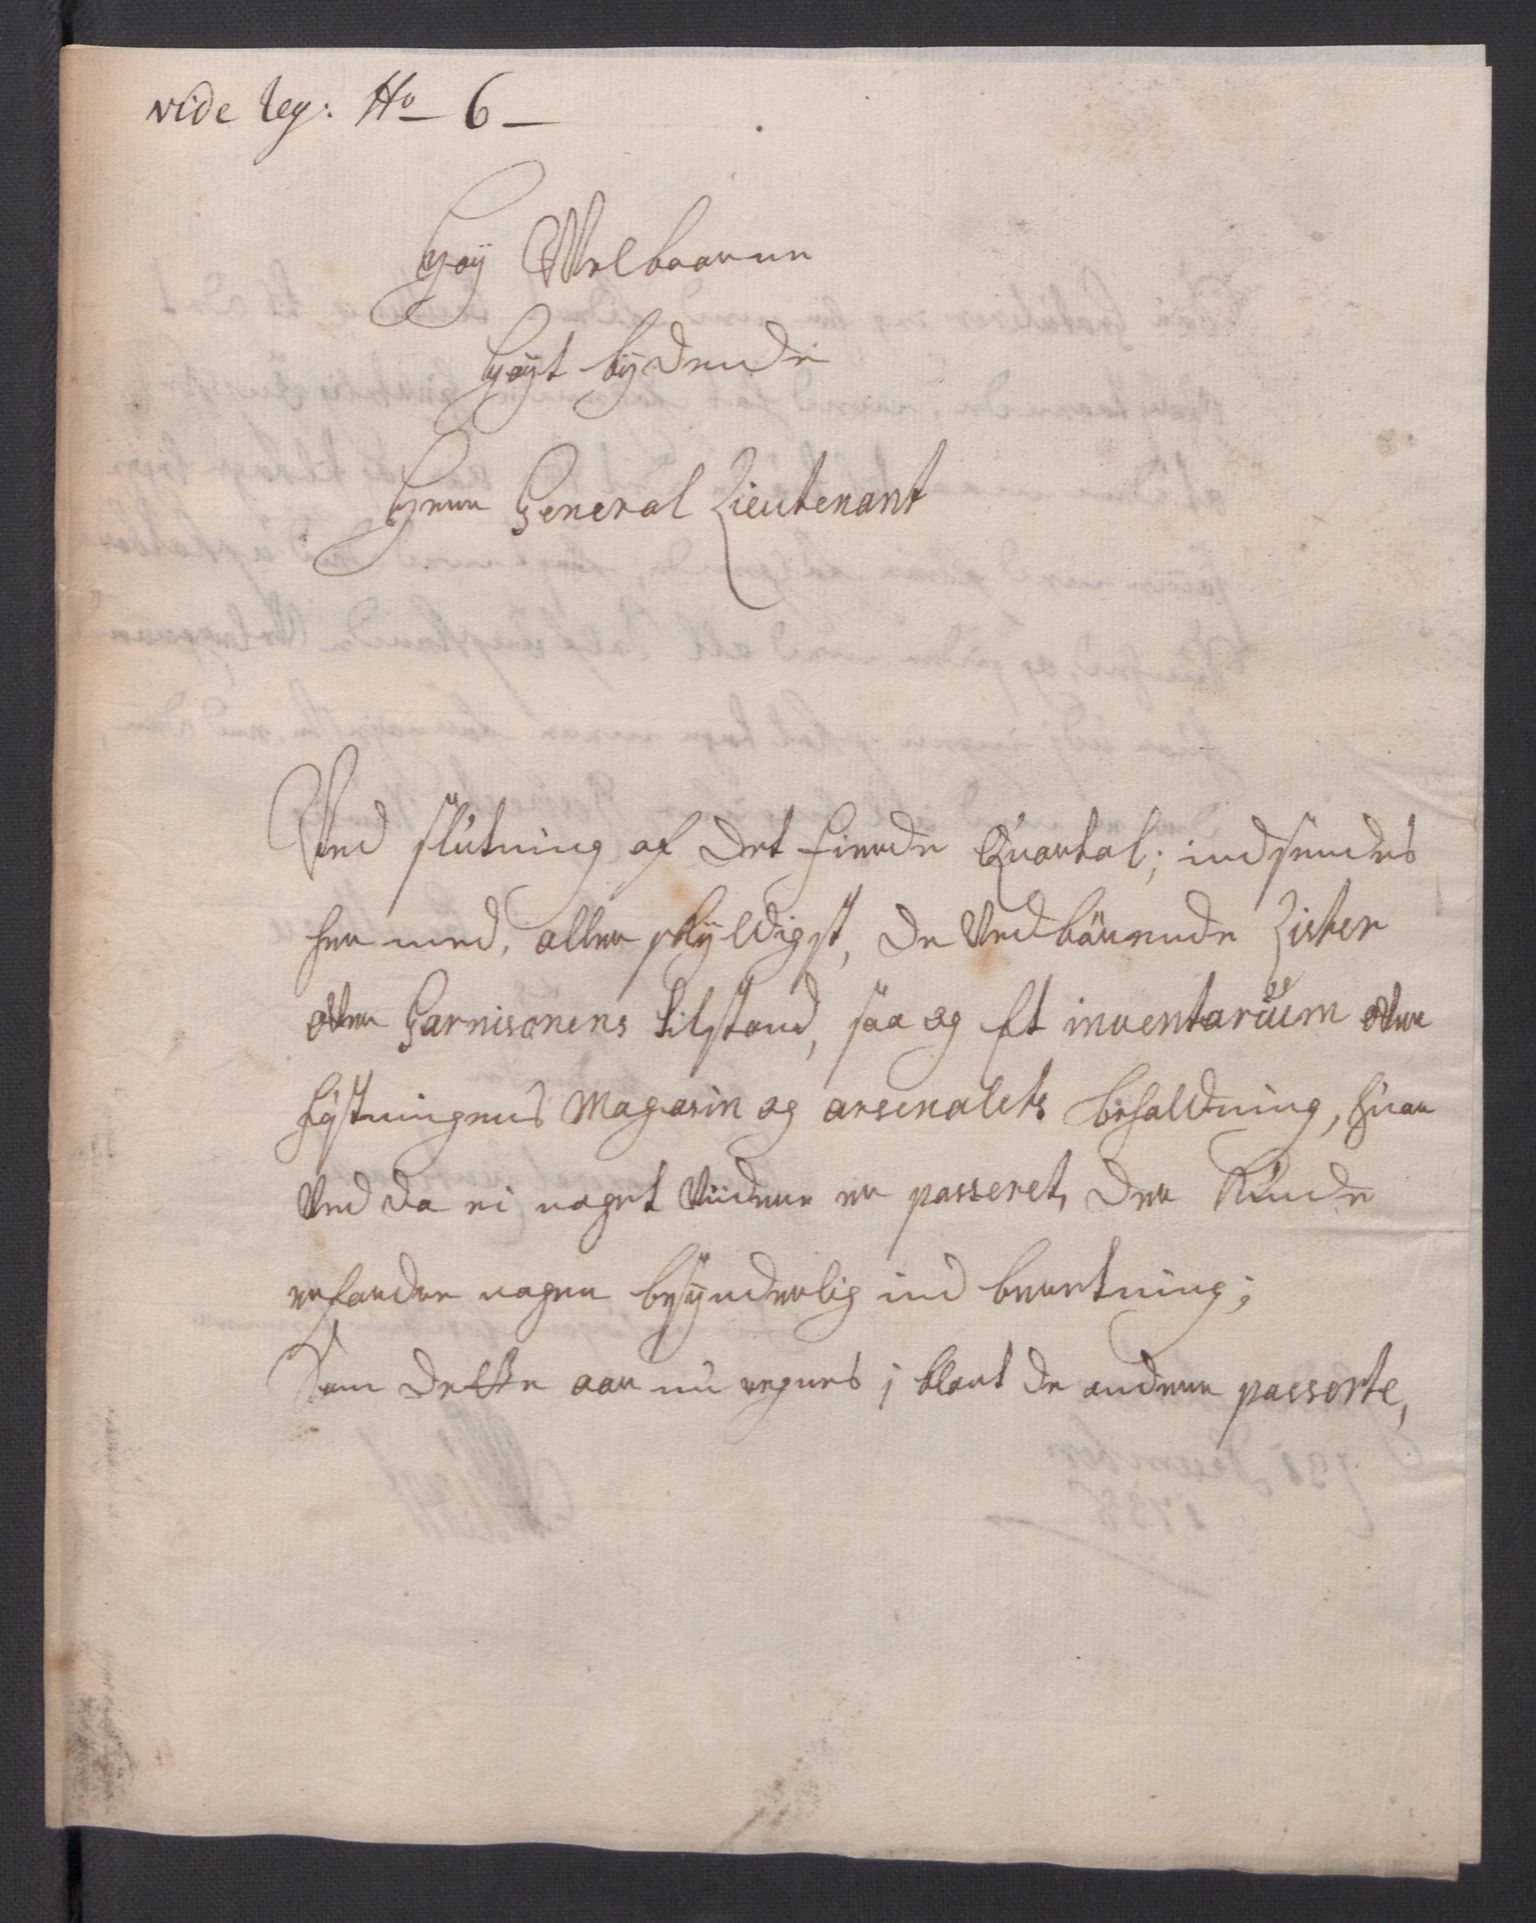 vide leg: No 6
Høy Welbaarne
høyt bydende
Herr General Lieutenant
Ved slutning af det fierde Quartal; indsendes
her med, aller skÿldigst, de vedbørende Lister
over Garnisonens tilstand, saa og Et inventarium over
festningens Magasin og arsenalets beholdning, hvor
ved da ei noget viidere er passeret, der kunde
erfordre nogen besÿnderlig ind beretning;
Som dette aar nu regnes i blant de andere passerte,